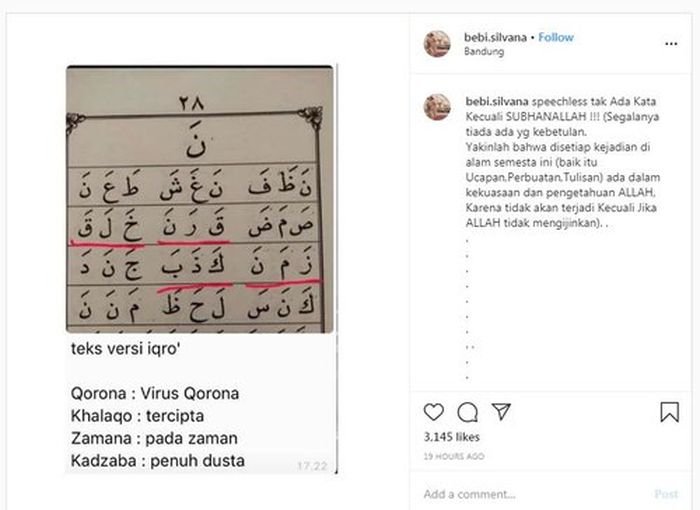 ٢٨
نَ
نَ ظَ فَ نَ غَ شَ طَ عَ نَ
صَ مَ ضَ قَ رَ نَ خَ لَ قَ
زَ مَ نَ كَ ذَ بَ جَ نَ دَ
كَ نَ سَ لَ حَ ظَ مَ نَ نَ
teks versi iqro'
Qorona : Virus Qorona
Khalaqo : tercipta
Zamana : pada zaman
Kadzaba : penuh dusta
17.22
bebi.silvana • Follow
Bandung
bebi.silvana speechless tak Ada Kata
Kecuali SUBHANALLAH !!! (Segalanya
tiada ada yg kebetulan.
Yakinlah bahwa disetiap kejadian di
alam semesta ini (baik itu
Ucapan,Perbuatan,Tulisan) ada dalam
kekuasaan dan pengetahuan ALLAH,
Karena tidak akan terjadi Kecuali Jika
ALLAH tidak mengijinkan). .
.
.
.
.
.
.
. .
.
.
3,145 likes
19 HOURS AGO
Add a comment...
Post